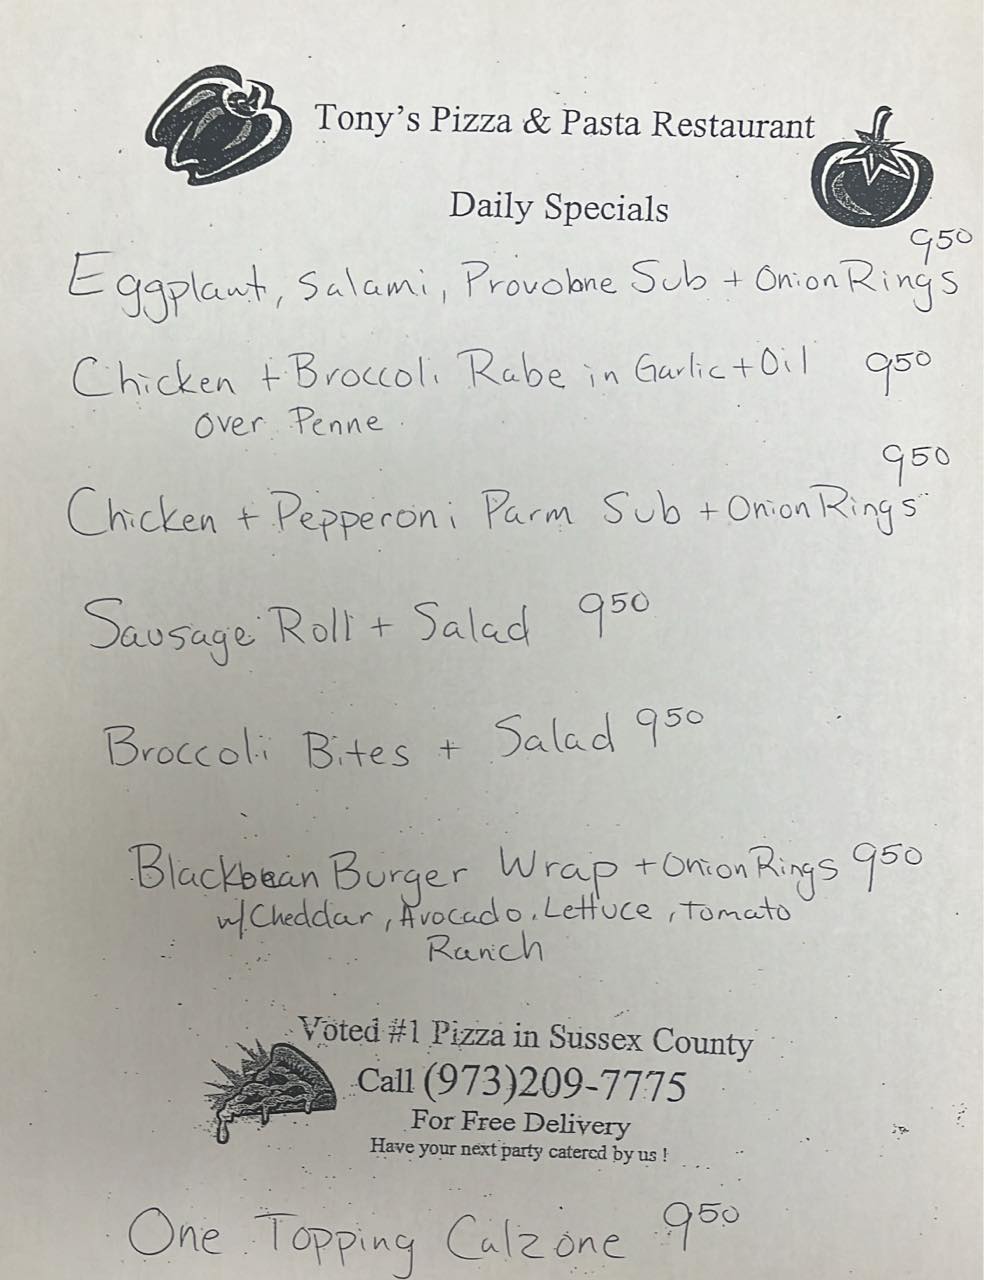 Tony's Pizza & Pasta Restaurant
Daily Specials
9.50
Eggplant, Salami, Provolone Sub + Onion Rings
Chicken + Broccoli Rabe in Garlic + Oil 9.50
over Penne
9.50
Chicken + Pepperoni Parm Sub + Onion Rings
Sausage Roll + Salad 9.50
Broccoli Bites + Salad 9.50
Blackbean Burger Wrap + Onion Rings 9.50
w/ Cheddar, Avocado, Lettuce, Tomato
Ranch
Voted #1 Pizza in Sussex County
Call (973)209-7775
For Free Delivery
Have your next party catered by us !
One Topping Calzone 9.50